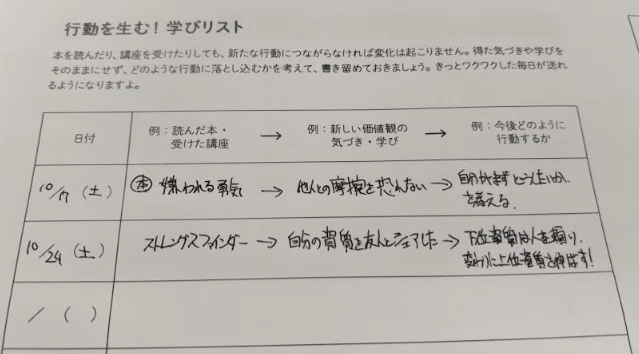 行動を生む！学びリスト
本を読んだり、講座を受けたりしても、新たな行動につながらなければ変化は起こりません。得た気づきや学びを
そのままにせず、どのような行動に落とし込むかを考えて、書き留めておきましょう。きっとワクワクした毎日が送れ
るようになりますよ。
日付
例：読んだ本・
受けた講座
→
例：新しい価値観の
気づき・学び
→
例：今後どのように
行動するか
10/17（土）
本 嫌われる勇気 → 他人との摩擦を恐れない → 自分がまずどうしたいか
を考える。
10/24（土）
ストレングスファインダー → 自分の資質を友人とシェアした → 下位資質は人を頼り、
変わりに上位資質を伸ばす！
/ （ ）